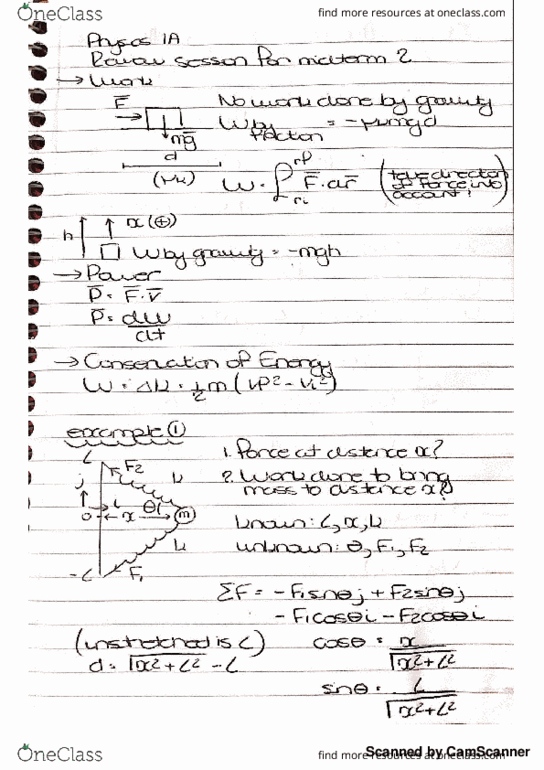 OneClass
find more resources at oneclass.com
Physics 1A
Review session for midterm 2
→ Work
F̄
No work done by gravity
W by friction = -μkmgd
mḡ
d
(μk)
W = ∫ri^rf F̄·dr̄ (take direction of force into account!)
h x(+)
W by gravity = -mgh
→ Power
P̄ = F̄·V̄
P̄ = dW/dt
→ Conservation of Energy
W = Δk = 1/2 m (Vf² - Vi²)
example ①
L F2 k
1. Force at distance x?
2. Work done to bring
mass to distance x?
j i
0 x θ m
known: L, x, k
k
unknown: θ, F1, F2
-L F1
ΣF = -F1sinθj + F2sinθj
- F1cosθi - F2cosθi
(unstretched is L)
cosθ = x/√x²+L²
d = √x²+L² - L
sinθ = L/√x²+L²
OneClass
find more resources at oneclass.com
Scanned by CamScanner